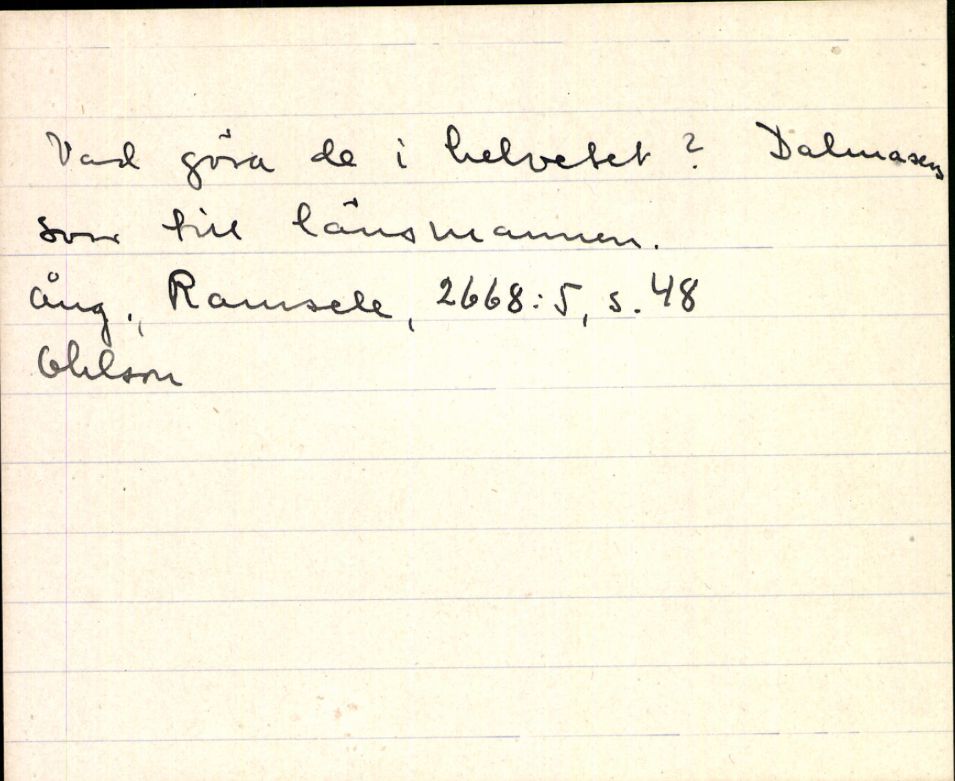 Vad göra de i helvetet? Dalmasens
svar till länsmannen.
Ång., Ramsele, 2668:5, s. 48
Ohlson